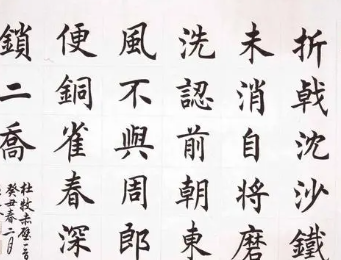 折戟沈沙鐵
未消自將磨
洗認前朝東
風不與周郎
便銅雀春深
鎖二喬
杜牧赤壁一首
癸丑春二月